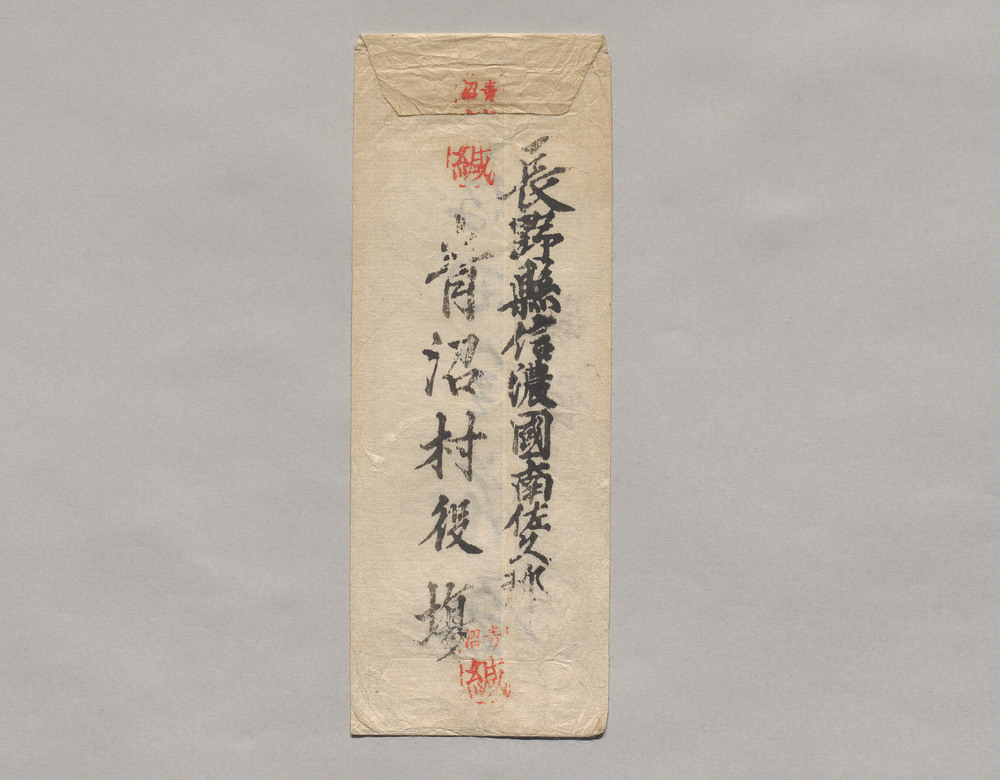 長野縣信濃國南佐久郡
青沼村役場
青沼
緘
青沼
緘